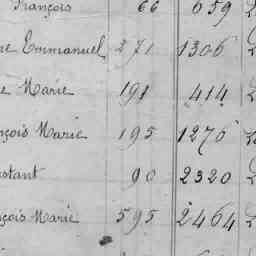 François 66 659
ne Emmanuel 271 1306
e Marie 191 414
nçois Marie 195 1276
nstant 90 2320
nçois Marie 595 2464